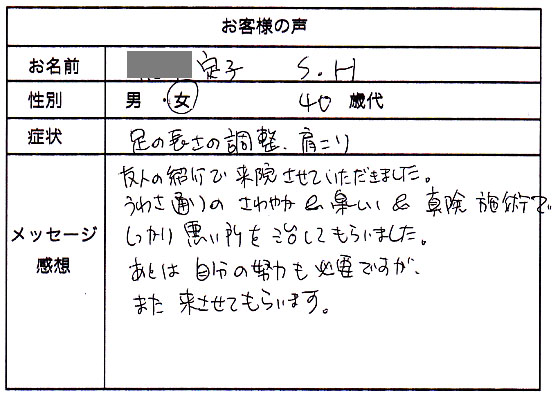 お客様の声
お名前 定子 S.H
性別 男・女 40 歳代
症状 足の長さの調整、肩こり
メッセージ 感想
友人の紹介で来院させていただきました。
うわさ通りのさわやか&楽しい&真険施術で、
しっかり悪い所を治してもらいました。
あとは自分の努力も必要ですが、
また来させてもらいます。